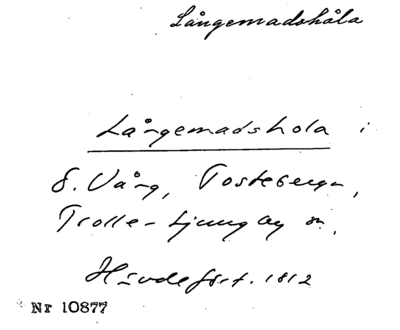 Långemadshåla
Långemadshola i
S. Vång, Tosteberga,
Trolle-Ljungby sn.
Hävdefört. 1812
Nr 10877